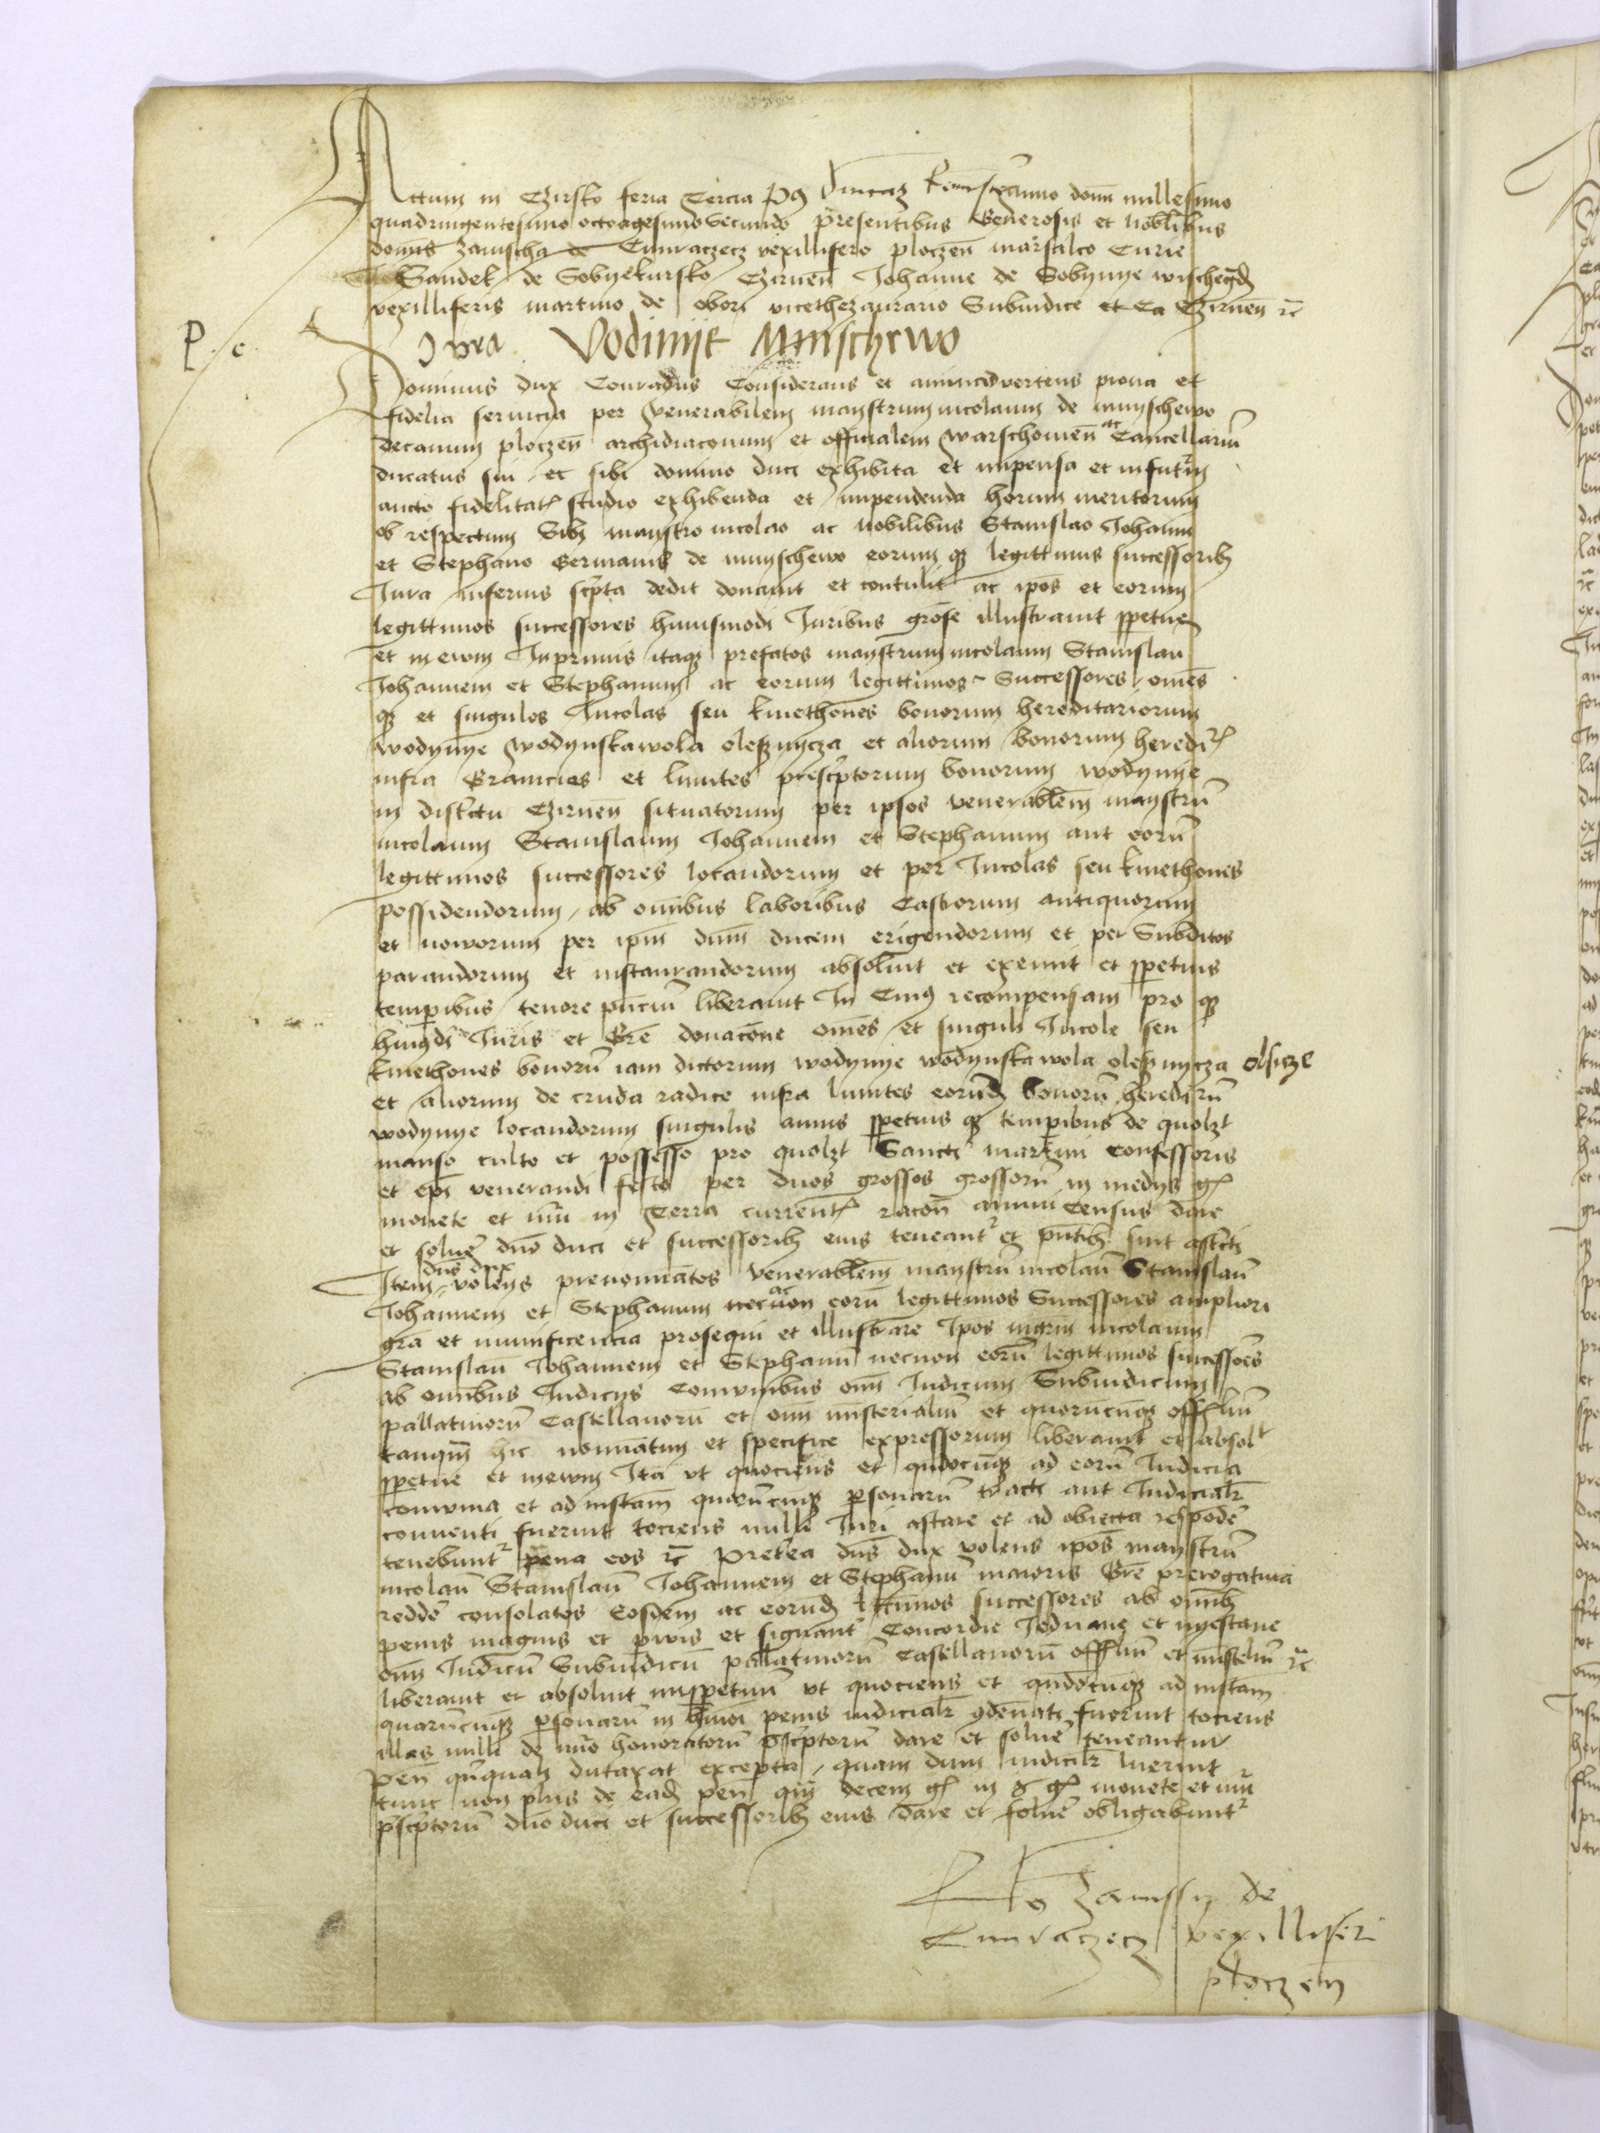 Actum in Czirsko feria Tercia anno domi millesimo
quadringentesimo octoagesimo secundo presentibus Generosis et nobilibus
domis Zamscha de Cunraczecz vexillifero ploczen marsalco Curie
Sandek de Sobyekursko Czirnen Johanne de Sobynye
vexilliferis martino de obori vicethezaurario Subiudice Czirnen
P. c.
Jura Vodinije Mmischewo
Dominus dux Conradus Considerans et animadvertens prona et
fidelia servicia per venerabilem maystrum nicolaum de mnyschewo
decanum ploczen archidiaconum et officialem warschovien ac Cancellarium
ducatus sui et sibi domino duci exhibita et inpensa et infuturum
aucto fidelitatis studio exhibenda et inpendenda horum meritorum
ob respectum maystro nicolao ac nobilibus Stanislao Johanni
et Stephano Germanis de mnyschewo eorumque legittimis successoribus
Jura inferius scripta dedit donavit et contulit ac ipos et eorum
legittimos successores huiusmodi Juribus illustravit ppetue
et in ewm Inprimis itaque prefatos maystrum nicolaum Stanislau
Johannem et Stephanum ac eorum legittimos Successores omes
que et singulos Incolas seu kmethones bonorum hereditariorum
wodynye wodynskawola olesznycza et aliorum bonorum heredi
infra Granicies et limites prescriptorum bonorum wodynye
in districtu Czirnen situatorum per ipsos venerablem maystru
nicolaum Stanislaum Johannem et Stephanum aut eoru
legittimos successores locandorum et per Incolas seu kmethones
possidendorum ab omibus laboribus Castrorum antiquorum
et novorum per ipm dnm ducem erigendorum et per Subditos
parandorum et instaurandorum absolvit et exemit et ppetuis
temporibus tenore pncium liberavit In Cuius recompensam pro que
Juris et Gre donacone omes et singuli Incole seu
kmethones bonoru iam dictorum wodynye wodynska wola olesznycza
et aliorum de cruda radice infra limites eorund bonoru
wodynye locandorum singulis annis ppetuis que temporibus de quolzt
manso culto et possesso pro quolzt Sancti martini confessoris
et epi venerandi festo per duos grossos grossoru in medys
monete et nui in Terra current racon annui Census dare
et solve duo duci et successorib eius teneant
Item dns dux volens prenominatos venerablem maystru nicolau Stanislau
Johannem et Stephanum ac eoru legittimos Successores ampliori
gra et munificencia prosequi et illustrare Ipos mgrm nicolaum
Stanislau Johannem et Stephanu necnon eoru legittimos successoes
ab omibus Judicys Comunibus omi Judicum Subiudicum
pallatinoru Castellanoru et omi misterialiu et quorucunque
tanqm hic nominatim et specifice expressorum liberavit et absol
ppetue et inewm Ita ut quociens et qndocunque ad eoru Judicia
comunia et ad instam quarucunque personaru tracti aut Judicialr
conventi fuerint tociens nulli Juri astare et ad obiecta respode
tenebunt pena eos Pretea dns dux volens ipos maystru
nicolau Stanislau Johannem et Stephanu maioris Gre prerogativa
redde consolatos Eosdem ac eorund successores ab omib
penis magnis et pvis et signant Concordie Jednane et nyestane
omi Judicu Subiudicu palatinoru Castellanoru
liberavit et absolvit ut quociens et qndocunque ad instam
quarucunque personaru in penis iudicialr fuerint tociens
illas nulli de honoratoru pscriptoru dare et solve teneantur
dutaxat excepta quam dum iudicilr luerint
tunc non plus de ead pen decem monete et
pscriptoru duo duci et successorib eius dare et solve obligabunt
Zamssy de
Cunraczecz vexilliferi
ploczen